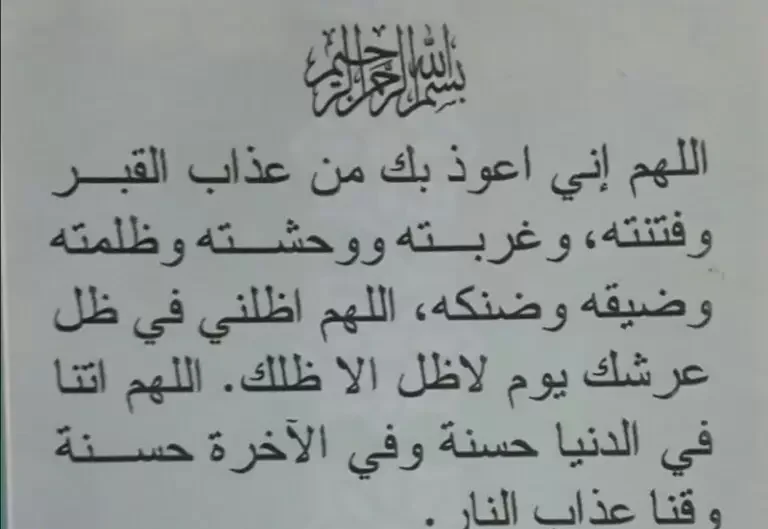 بسم الله الرحمن الرحيم
اللهم إني اعوذ بك من عذاب القبر
وفتنته، وغربته ووحشته وظلمته
وضيقه وضنكه، اللهم اظلني في ظل
عرشك يوم لاظل الا ظلك. اللهم اتنا
في الدنيا حسنة وفي الآخرة حسنة
وقنا عذاب النار .